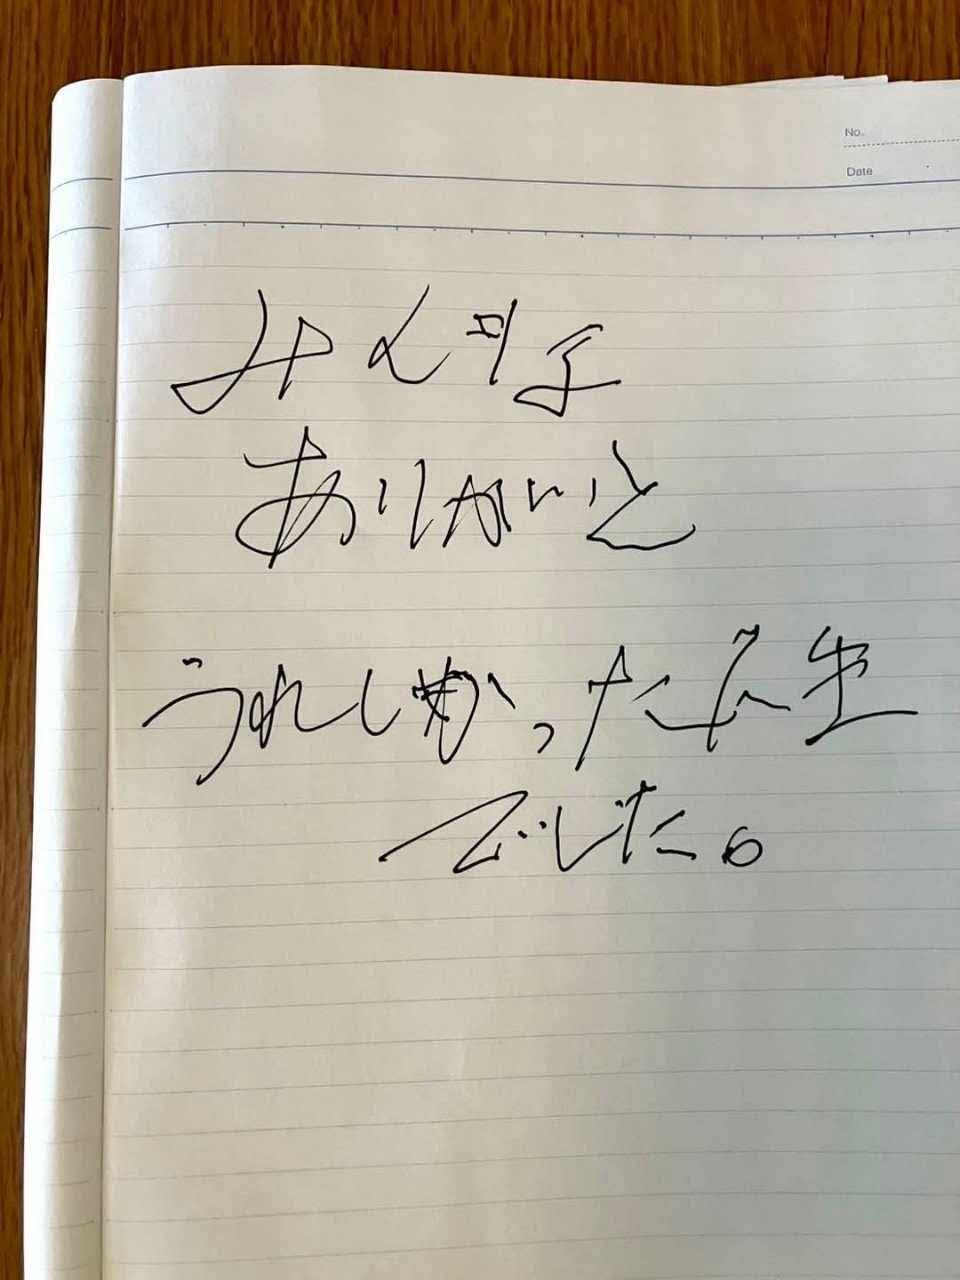 No.
Date
みんな
ありがとう
うれしかった人生
でした。